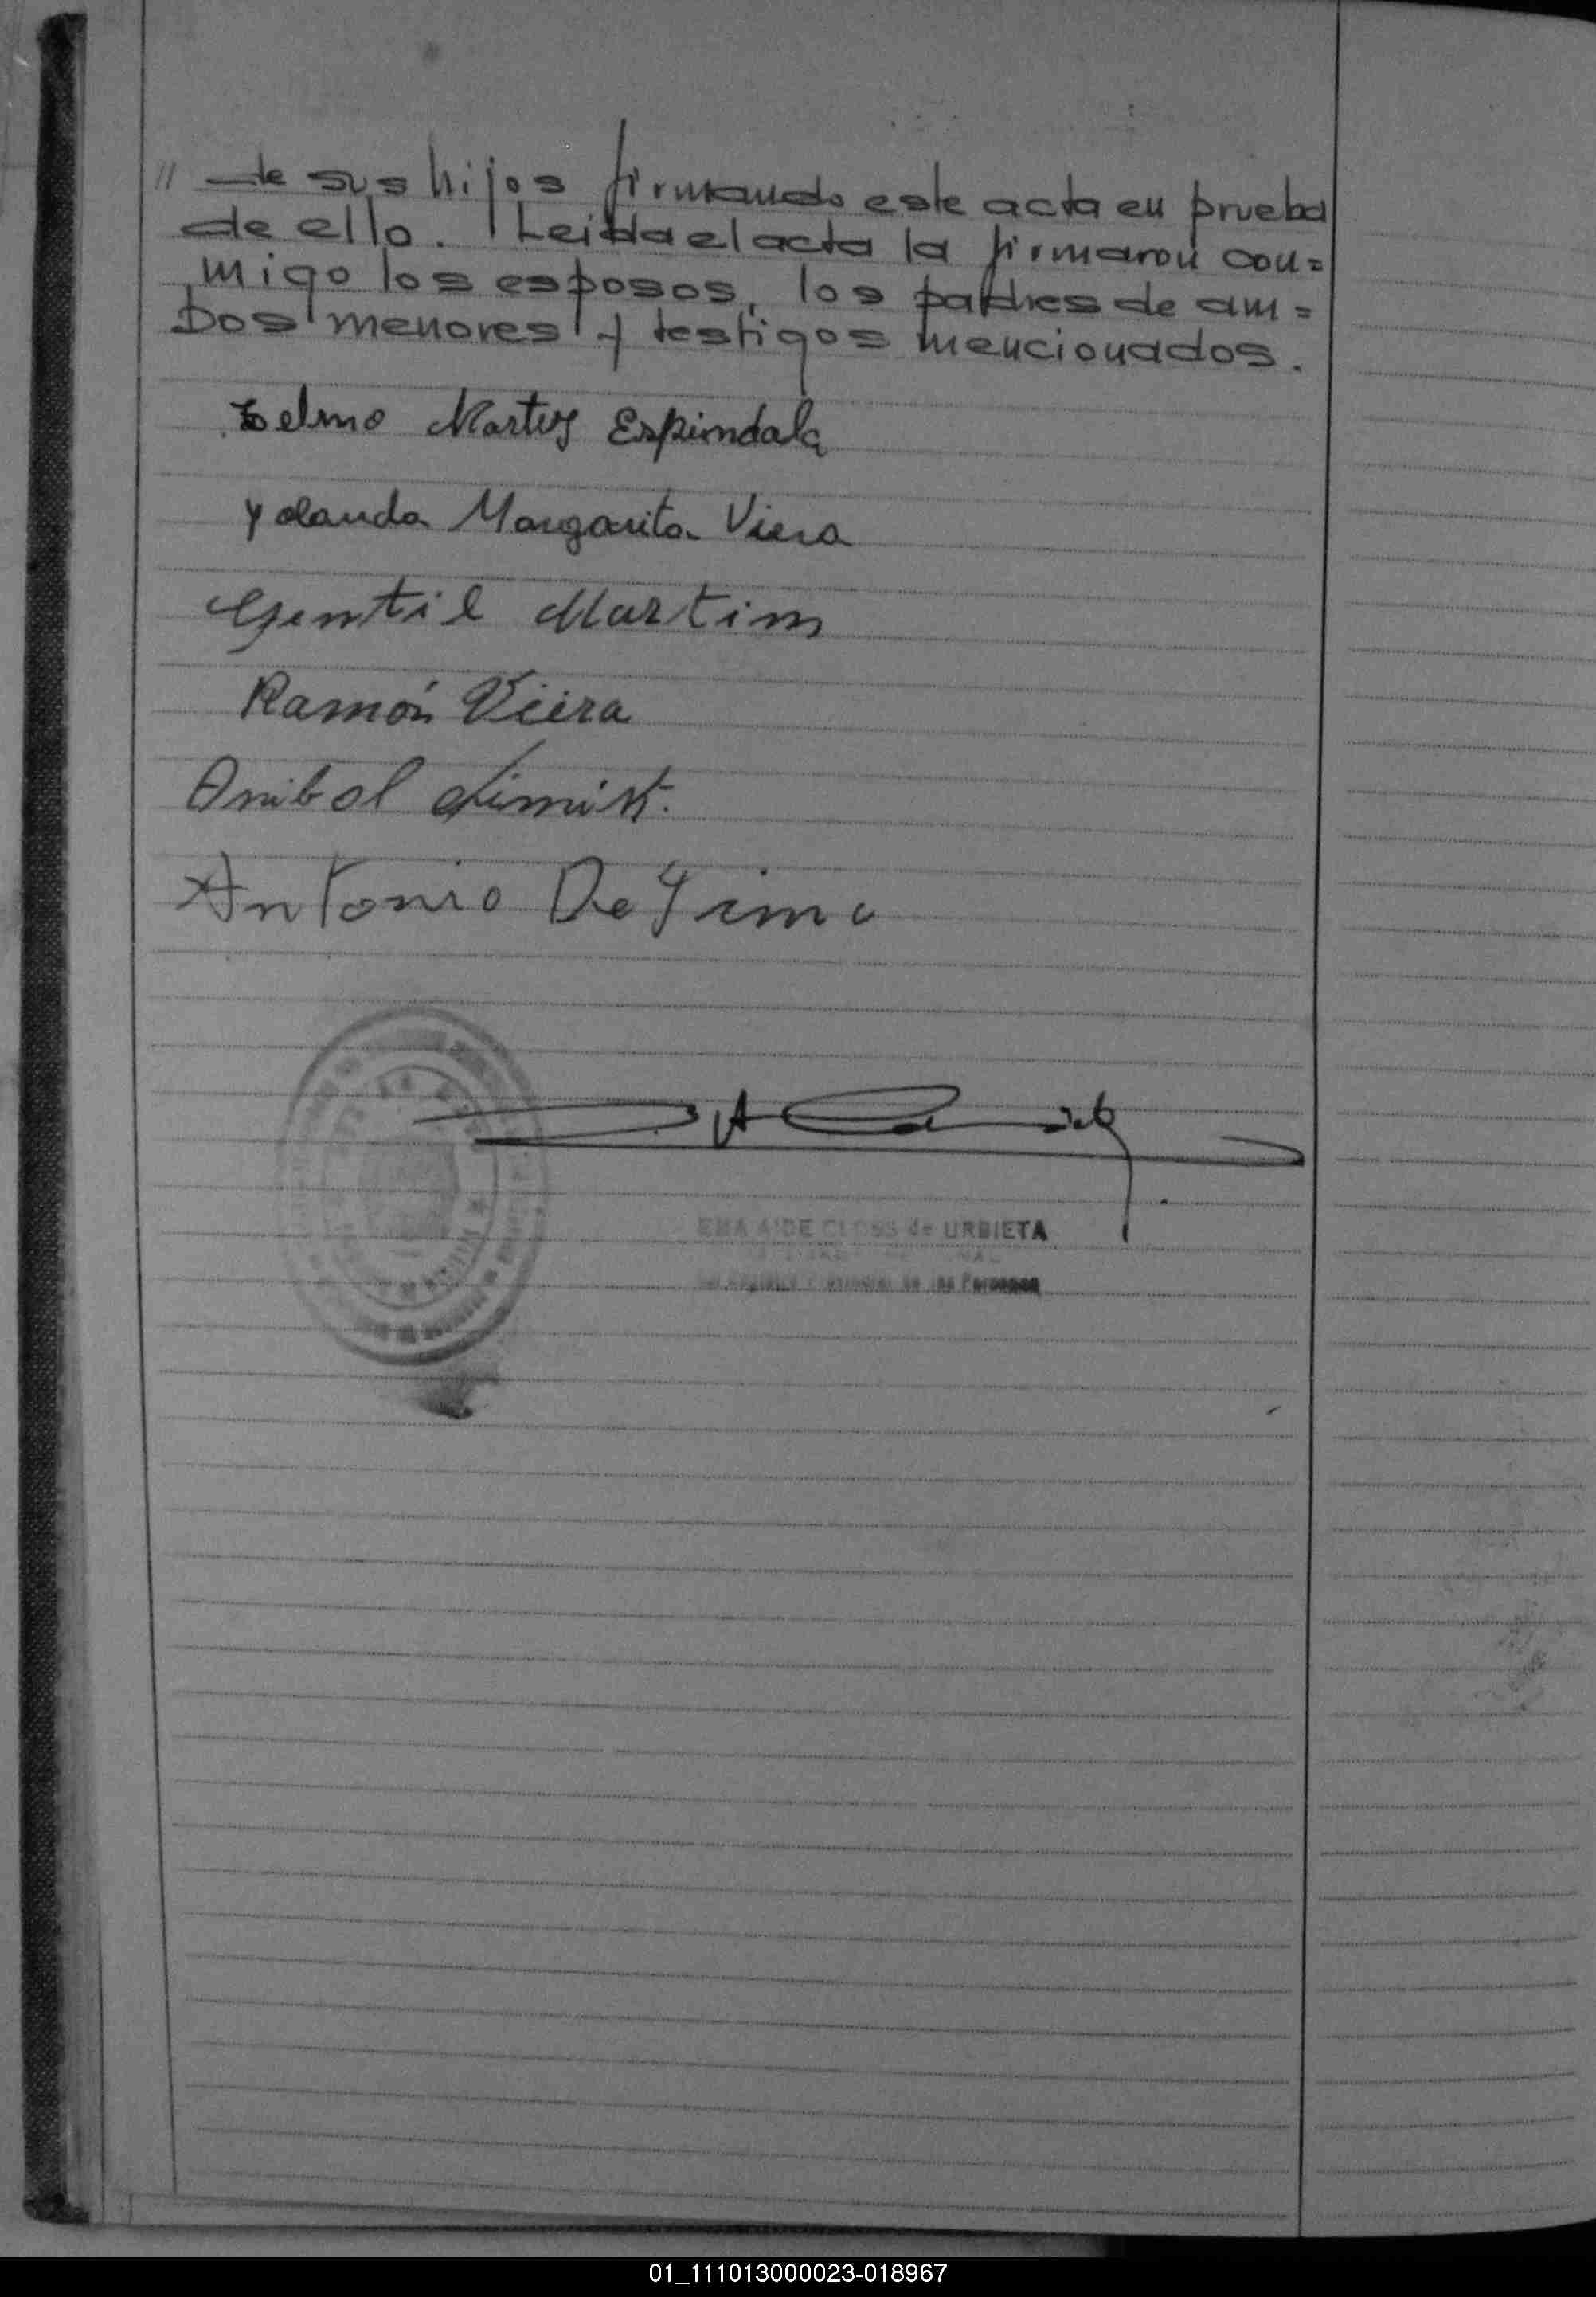 // de sus hijos firmando este acta en prueba
de ello. Leida el acta la firmaron con=
migo los esposos, los padres de am=
bos menores y testigos mencionados.
Telmo Martins Espindala
Yolanda Margarita Viera
Gentil Martim
Ramón Viera
Anibal
Antonio De Lima
EMA AIDE CLOSS de URBIETA
de las Personas
01_111013000023-018967